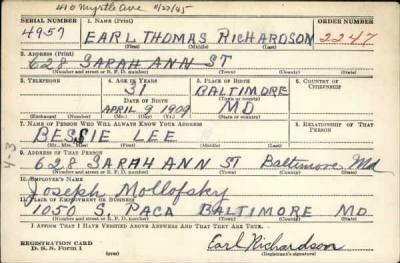 410 Myrtle Ave 8/27/45
SERIAL NUMBER 1. NAME (Print) ORDER NUMBER
4957 EARL THOMAS RICHARDSON 2247
(First) (Middle) (Last)
2. ADDRESS (Print)
628 SARAH ANN ST
(Number and street or R. F. D. number) (Town) (County) (State)
3. TELEPHONE 4. AGE IN YEARS 5. PLACE OF BIRTH 6. COUNTRY OF CITIZENSHIP
31 BALTIMORE
DATE OF BIRTH (Town or county)
APRIL 9 1909 MD
(Exchange) (Number) (Mo.) (Day) (Yr.) (State or country)
7. NAME OF PERSON WHO WILL ALWAYS KNOW YOUR ADDRESS 8. RELATIONSHIP OF THAT PERSON
BESSIE LEE
(Mr., Mrs., Miss) (First) (Middle) (Last)
9. ADDRESS OF THAT PERSON
628 SARAH ANN ST Baltimore Md
(Number and street or R. F. D. number) (Town) (County) (State)
10. EMPLOYER'S NAME
Joseph Mollofsky
11. PLACE OF EMPLOYMENT OR BUSINESS
1050 S. PACA BALTIMORE MD
(Number and street or R. F. D. number) (Town) (County) (State)
I AFFIRM THAT I HAVE VERIFIED ABOVE ANSWERS AND THAT THEY ARE TRUE.
REGISTRATION CARD
D. S. S. Form 1 (over) Earl Richardson
(Registrant's signature)